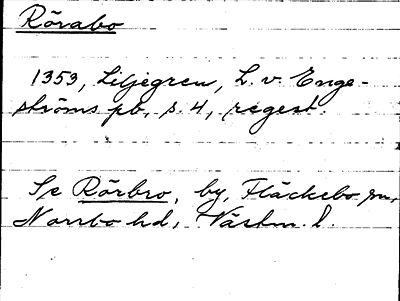 Rörabo
1353, Liljegren, L. v. Enge-
ströms pb, s. 4, regest.
Se Rörbro, by, Fläckebo sn,
Norrbo hd, Västm. l.